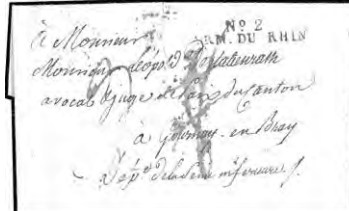 Nº 2
ARM. DU RHIN
à Monsieur
Monsieur Léopold
avocat & juge de Paix du Canton
à Gournay en Bray
Dép.t de la Seine inférieure